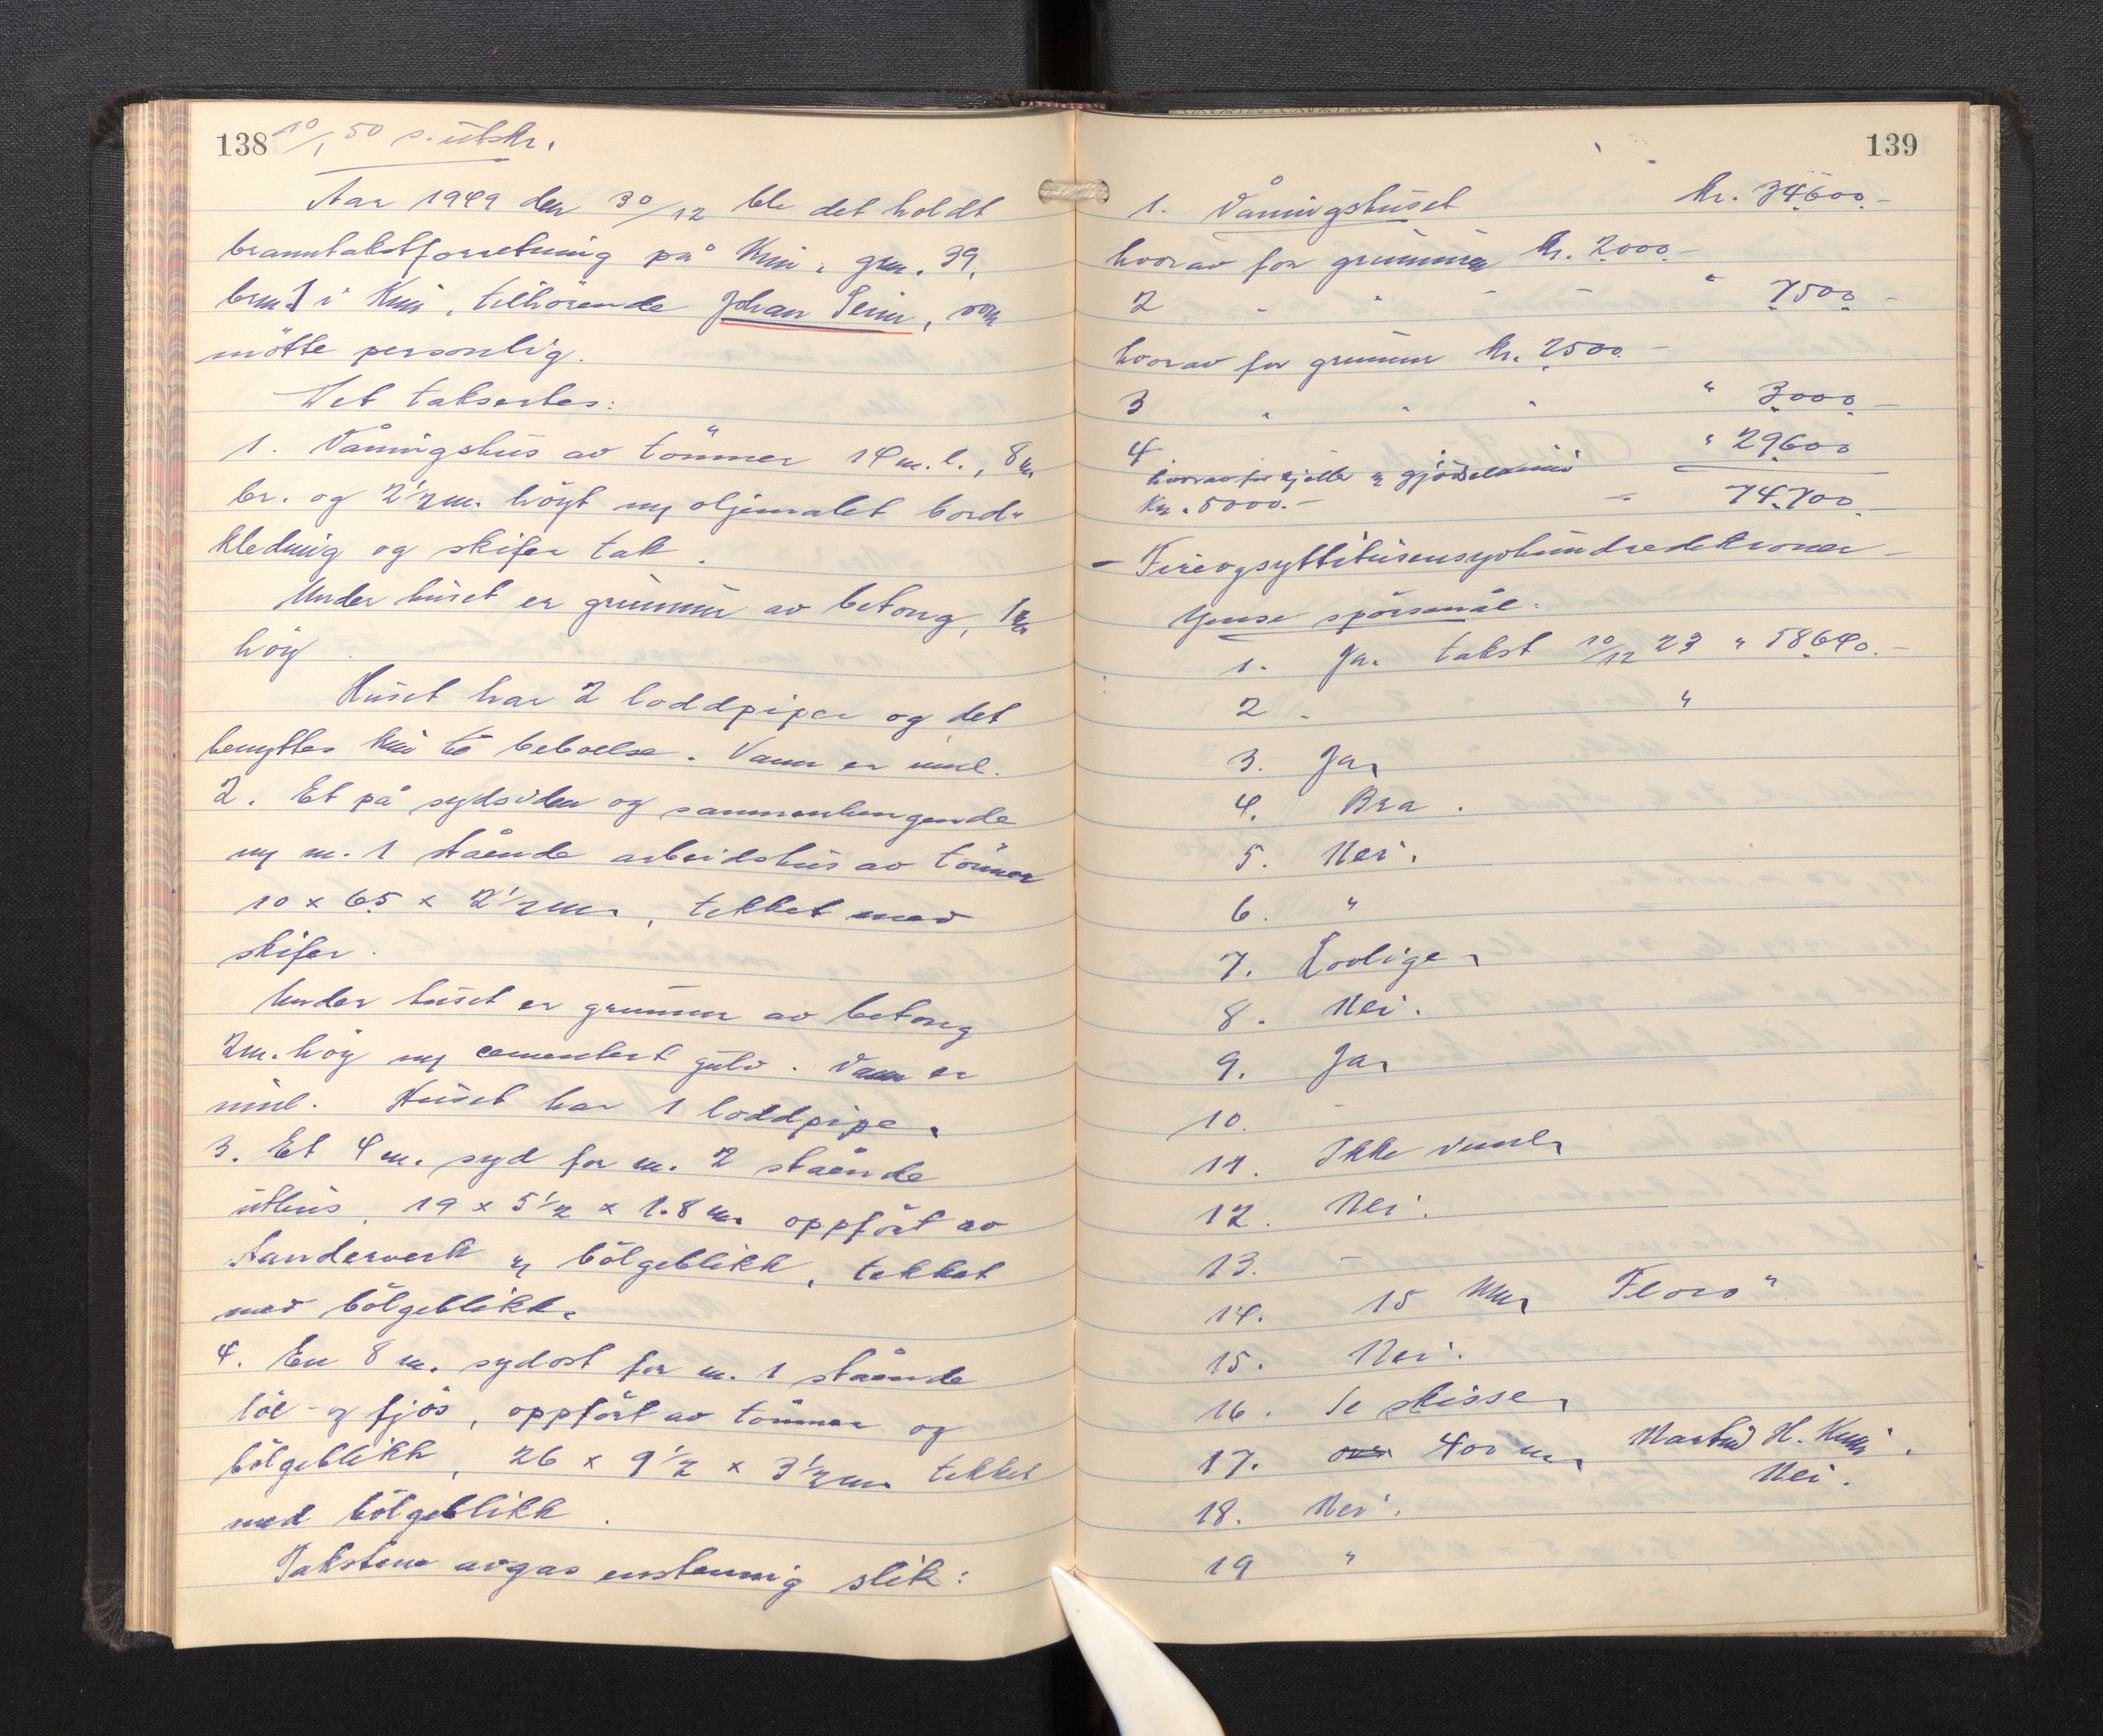 138 10/1 50 s. utskr.
Aar 1949 den 30/12 ble det holdt
branntakstforretning på Kinn, gnr. 39,
brn. 1 i Kinn, tilhörende Johan Seim, som
mötte personlig.
Det taksertes:
1. Våningshus av tömmer 14 m. l., 8 m
br. og 2 1/2 m. höyt m/ oljemalet bord-
kledning og skifer tak.
Under huset er grunnmur av betong, 1 m
höy.
Huset har 2 loddpiper og det
benyttes kun til beboelse. Vann er innl.
2. Et på sydsiden og sammenhengende
m/ nr. 1 stående arbeidshus av tömmer
10 x 6.5 x 2 1/2 m., tekket med
skifer.
Under huset er grunnmur av betong
2 m. höy m/ cementert gulv. Vann er
innl. Huset har 1 loddpipe.
3. Et 4 m. syd for nr. 2 stående
uthus, 19 x 5 1/2 x 1.8 m. oppfört av
standerverk og bölgeblikk, tekket
med bölgeblikk.
4. En 8 m. sydost for nr. 1 stående
löe- og fjös, oppfört av tömmer og
bölgeblikk, 26 x 9 1/2 x 3 1/2 m. tekket
med bölgeblikk.
Takstene avgas enstemmig slik:
139
1. Våningshuset kr. 34.600.-
hvorav for grunnmuren kr. 2.000.-
2 " " " " " 7500.-
hvorav for grunnmur kr. 2500.-
3 " " " " 3.000.-
4 " 29.600
hvorav for kjeller og gjödselkum
Kr. 5000.- 74.700.
- Fireogsyttitusensyvhundredekroner -
Ymse spörsmål:
1. Ja. takst 10/12 23 " 58.640.-
2 " "
3. Ja.
4. Bra.
5. Nei.
6. "
7. Lovlige.
8. Nei.
9. Ja.
10. -
11. Ikke innl.
12. Nei.
13. -
14. 15 km. Florö"
15. Nei.
16. Se skisse.
17. 400 m. H.
Nei.
18. Nei.
19 "